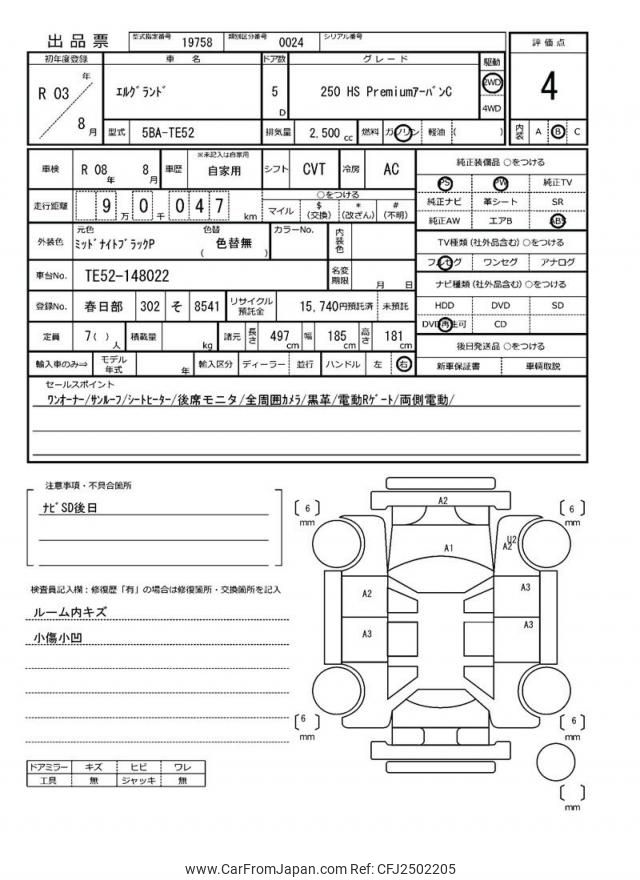 出品票
型式指定番号 19758 類別区分番号 0024 シリアル番号
初年度登録 車名 ドア数 グレード 駆動 評価点
R 03 年 8 月
ｴﾙｸﾞﾗﾝﾄﾞ 5 D 250 HS PremiumｱｰﾊﾞﾝC 2WD 4WD 4
型式 5BA-TE52 排気量 2,500 cc 燃料 ガソリン 軽油 ( ) 内装 A B C
車検 R 08 年 8 月 車歴 ※未記入は自家用 自家用 シフト CVT 冷房 AC
走行距離 9 万 0 千 0 4 7 km
○をつける
マイル $ (交換) * (改ざん) # (不明)
外装色 元色 ﾐｯﾄﾞﾅｲﾄﾌﾞﾗｯｸP 色替 ( 色替無 ) カラーNo. 内装色
車台No. TE52-148022 名変期限 月 日
登録No. 春日部 302 そ 8541 リサイクル預託金 15,740円預託済 未預託
定員 7( ) 人 積載量 kg 諸元 長さ 497 cm 幅 185 cm 高さ 181 cm
輸入車のみ⇒ モデル年式 年 輸入区分 ディーラー 並行 ハンドル 左 右
純正装備品 ○をつける
PS PW 純正TV
純正ナビ 革シート SR
純正AW エアB ABS
TV種類 (社外品含む) ○をつける
フルセグ ワンセグ アナログ
ナビ種類 (社外品含む) ○をつける
HDD DVD SD
DVD再生可 CD
後日発送品 ○をつける
新車保証書 車輌取説
セールスポイント
ﾜﾝｵｰﾅｰ/ｻﾝﾙｰﾌ/ｼｰﾄﾋｰﾀｰ/後席モニタ/全周囲ｶﾒﾗ/黒革/電動Rｹﾞｰﾄ/両側電動/
注意事項・不具合箇所
ﾅﾋﾞSD後日
検査員記入欄：修復歴「有」の場合は修復箇所・交換箇所を記入
ルーム内キズ
小傷小凹
ドアミラー キズ ヒビ ワレ
工具 無 ジャッキ 無
6 mm
A2
6 mm
U2
A2
A1
A2
A3
A3
A3
6 mm
6 mm
mm
www.CarFromJapan.com Ref: CFJ2502205